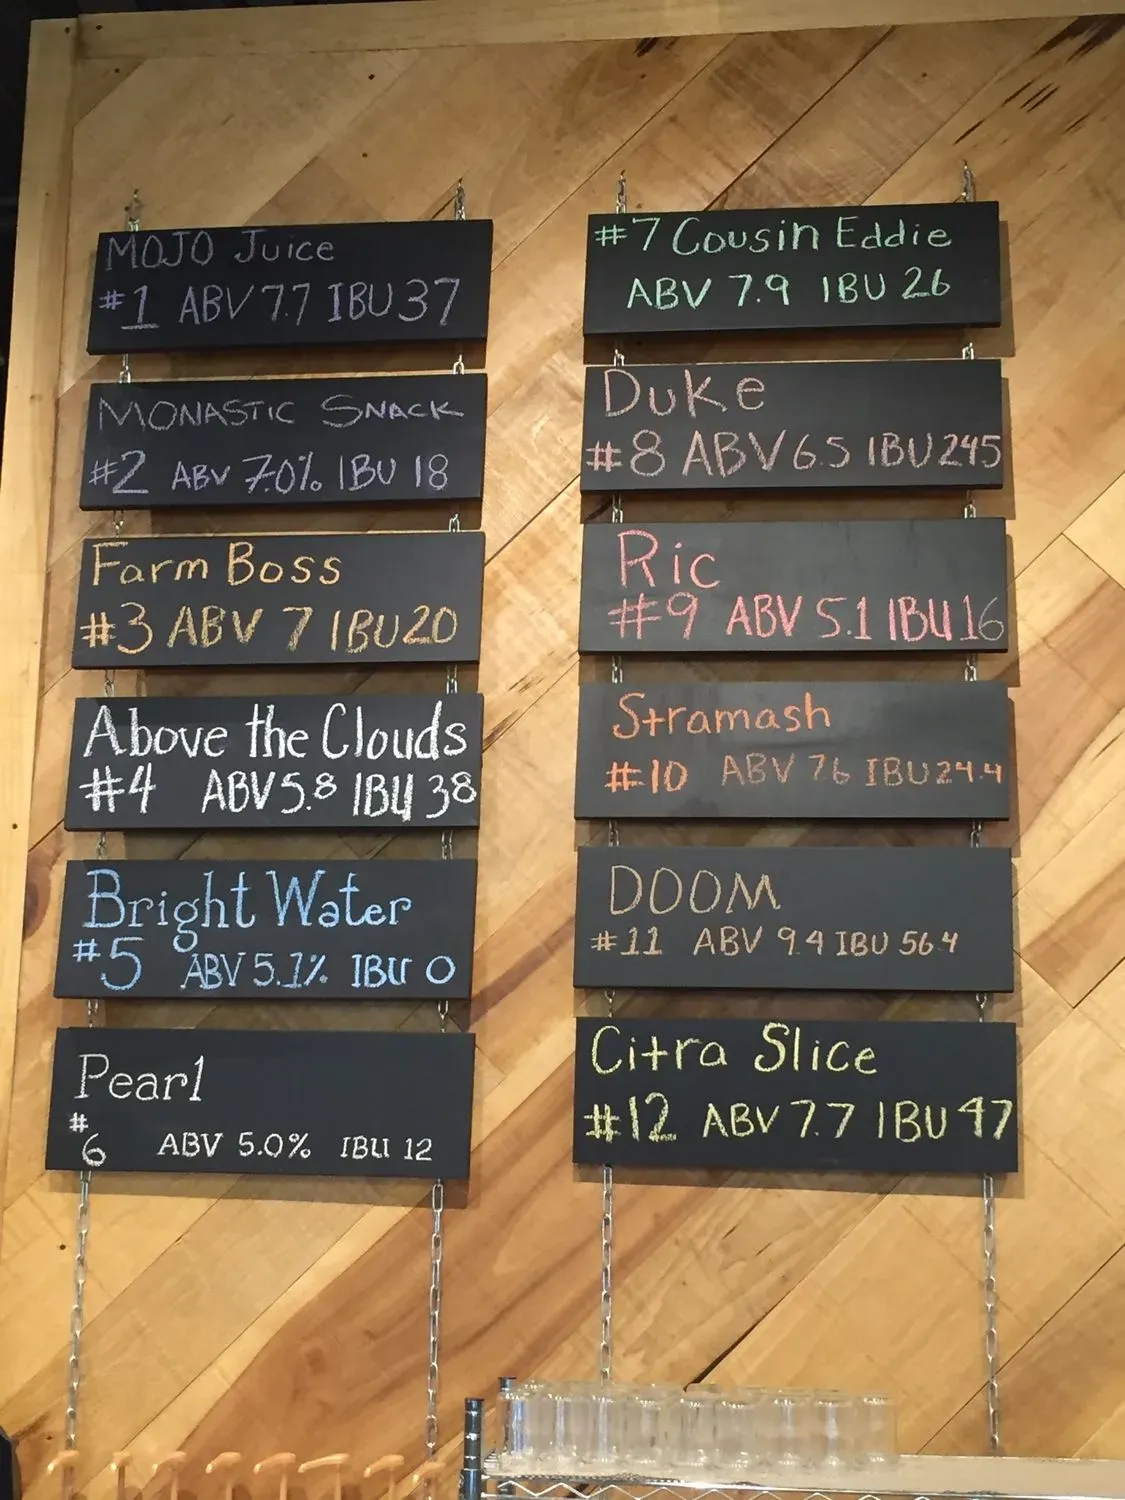 MOJO Juice
#1 ABV 7.7 IBU 37
MONASTIC SNACK
#2 ABV 7.0% IBU 18
Farm Boss
#3 ABV 7 IBU 20
Above the Clouds
#4 ABV 5.8 IBU 38
Bright Water
#5 ABV 5.1% IBU 0
Pearl
#6 ABV 5.0% IBU 12
#7 Cousin Eddie
ABV 7.9 IBU 26
Duke
#8 ABV 6.5 IBU 245
Ric
#9 ABV 5.1 IBU 16
Stramash
#10 ABV 7.6 IBU 24.4
DOOM
#11 ABV 9.4 IBU 56.4
Citra Slice
#12 ABV 7.7 IBU 47